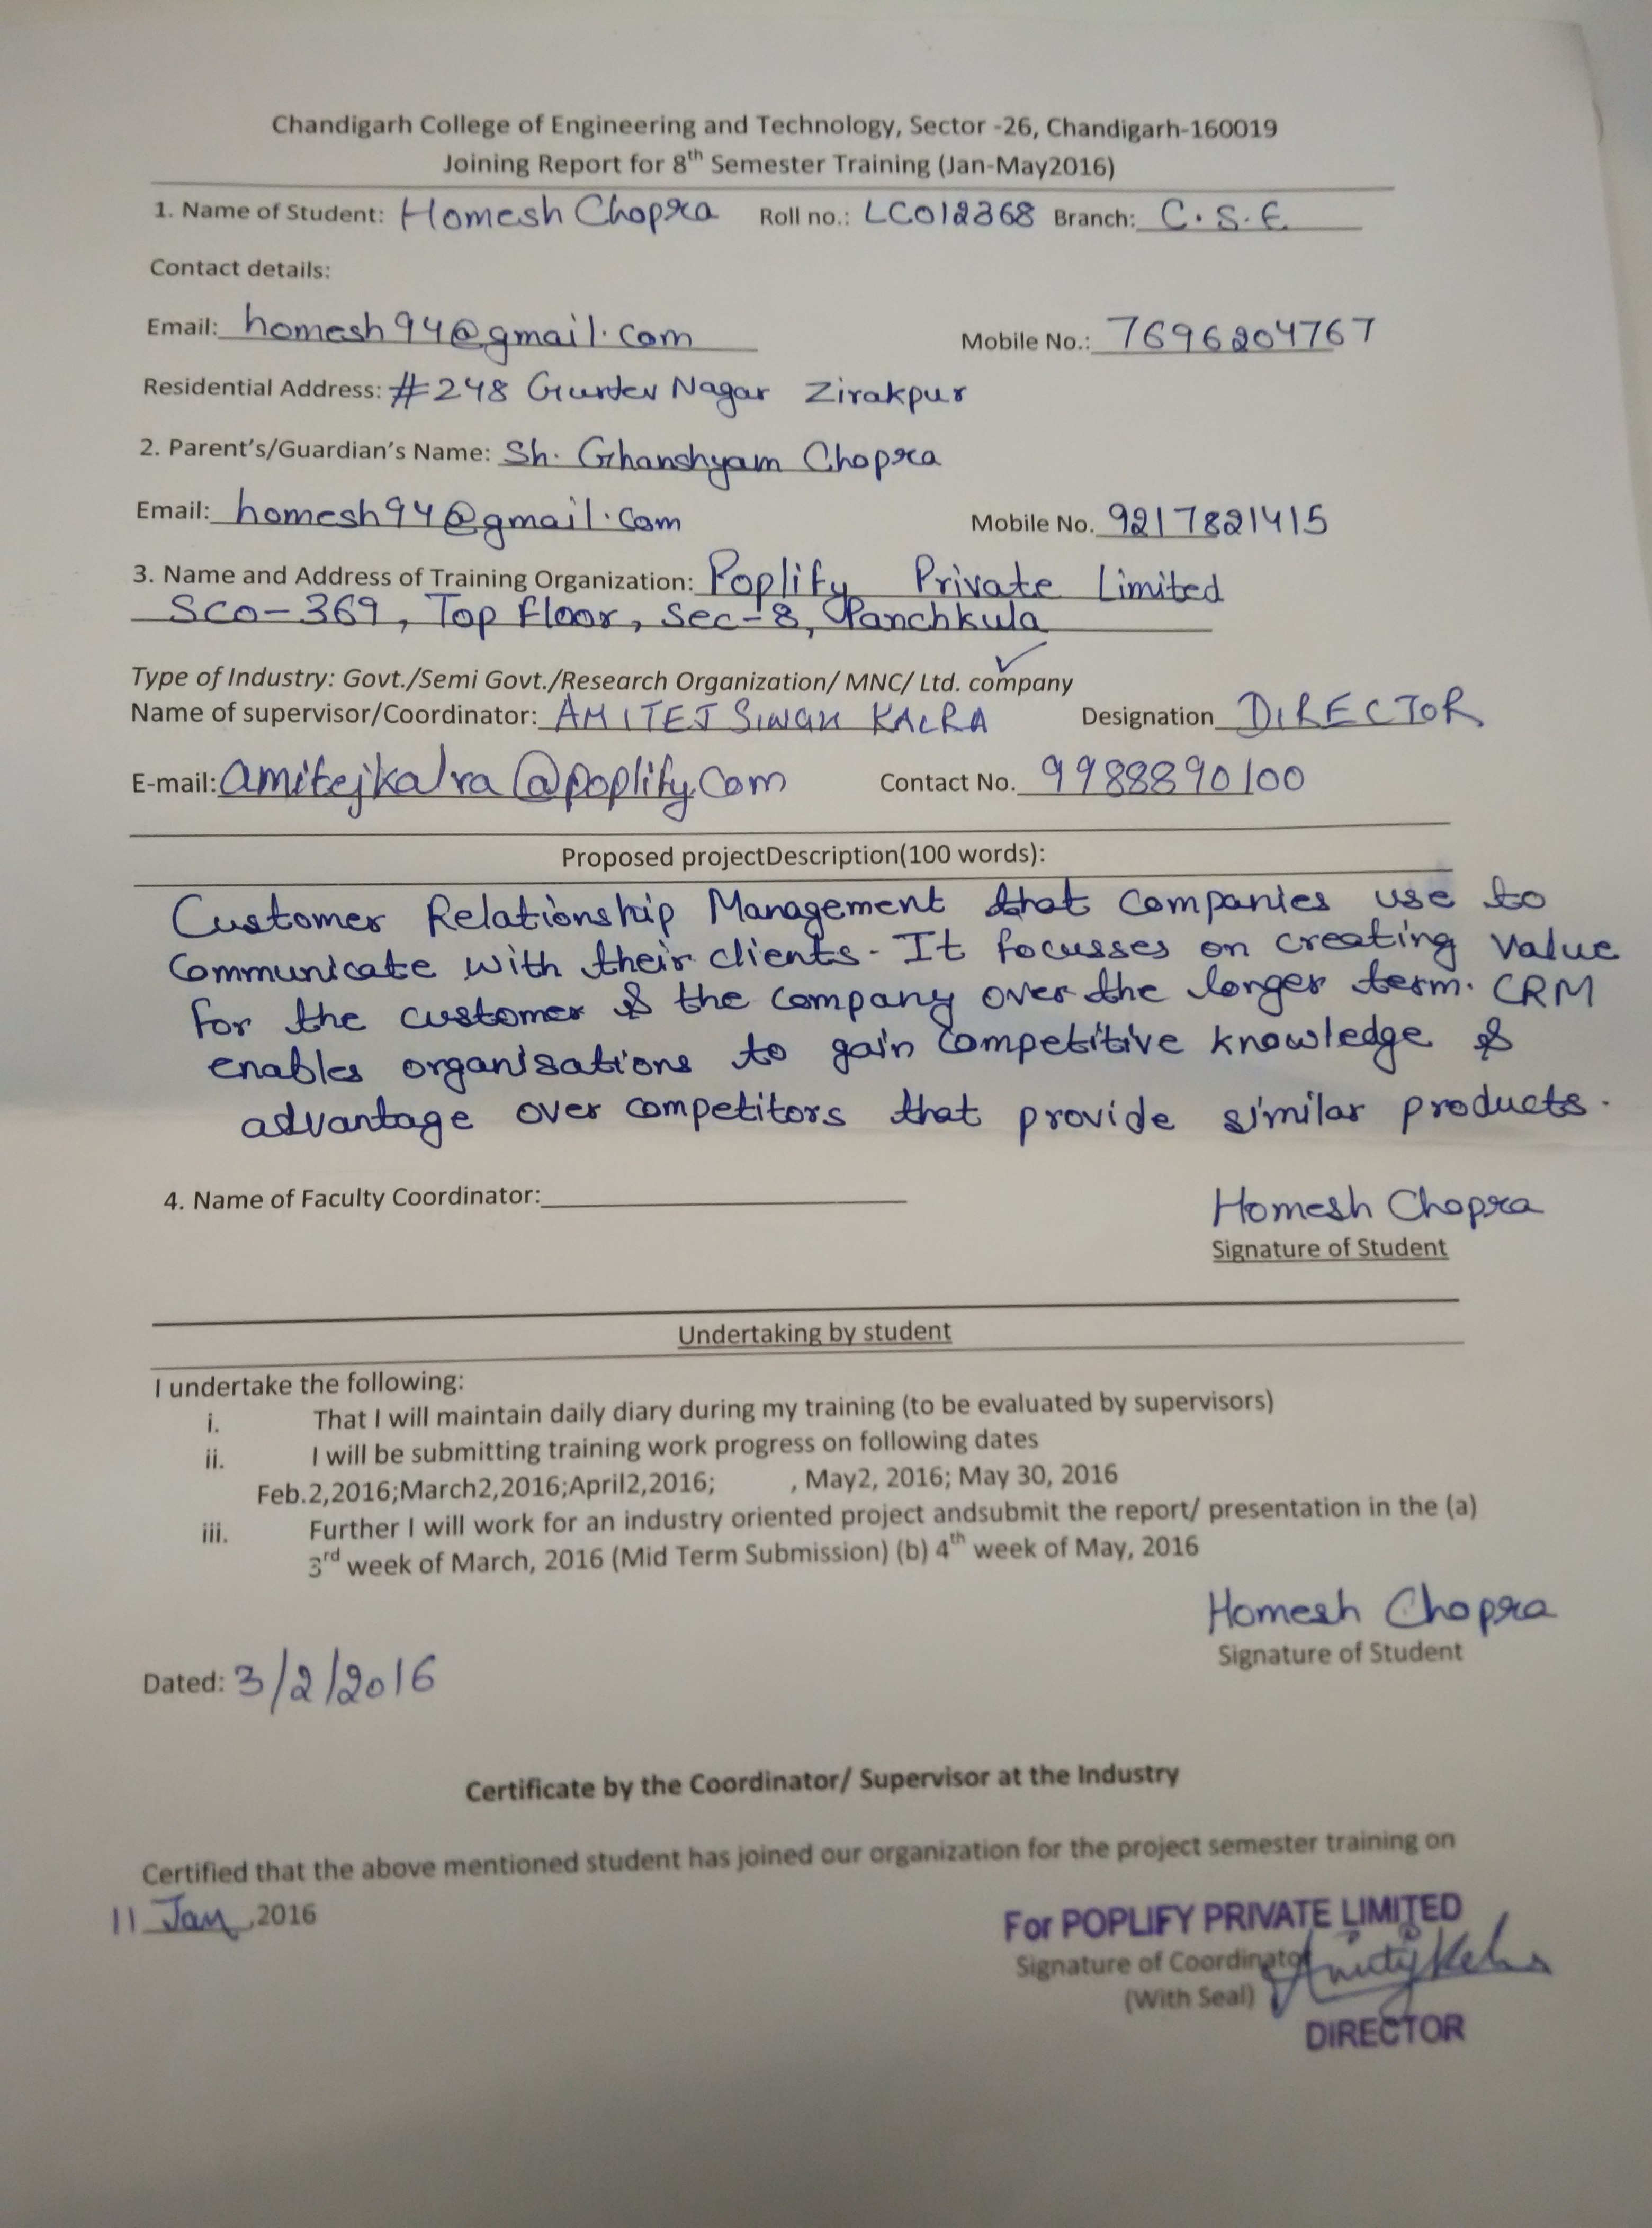 Chandigarh College of Engineering and Technology, Sector -26, Chandigarh-160019
Joining Report for 8th Semester Training (Jan-May2016)
1. Name of Student: Homesh Chopra Roll no.: LCO12368 Branch: C.S.E
Contact details:
Email: homesh94@gmail.com Mobile No.: 7696204767
Residential Address: #248 Gurdev Nagar Zirakpur
2. Parent's/Guardian's Name: Sh. Ghanshyam Chopra
Email: homesh94@gmail.com Mobile No. 9217821415
3. Name and Address of Training Organization: Poplify Private Limited
SCO-369, Top Floor, Sec-8, Panchkula
Type of Industry: Govt./Semi Govt./Research Organization/ MNC/ Ltd. company
Name of supervisor/Coordinator: AMITEJ SINGH KALRA Designation DIRECTOR
E-mail: amitejkalra@poplify.com Contact No. 9988890100
Proposed projectDescription(100 words):
Customer Relationship Management that companies use to
communicate with their clients. It focusses on creating value
for the customer & the company over the longer term. CRM
enables organisations to gain competitive knowledge &
advantage over competitors that provide similar products.
4. Name of Faculty Coordinator: Homesh Chopra
Signature of Student
Undertaking by student
I undertake the following:
i. That I will maintain daily diary during my training (to be evaluated by supervisors)
ii. I will be submitting training work progress on following dates
Feb.2,2016;March2,2016;April2,2016; , May2, 2016; May 30, 2016
iii. Further I will work for an industry oriented project andsubmit the report/ presentation in the (a)
3rd week of March, 2016 (Mid Term Submission) (b) 4th week of May, 2016
Homesh Chopra
Signature of Student
Dated: 3/2/2016
Certificate by the Coordinator/ Supervisor at the Industry
Certified that the above mentioned student has joined our organization for the project semester training on
11 Jan ,2016
For POPLIFY PRIVATE LIMITED
Signature of Coordinator Amitejkalra
(With Seal)
DIRECTOR